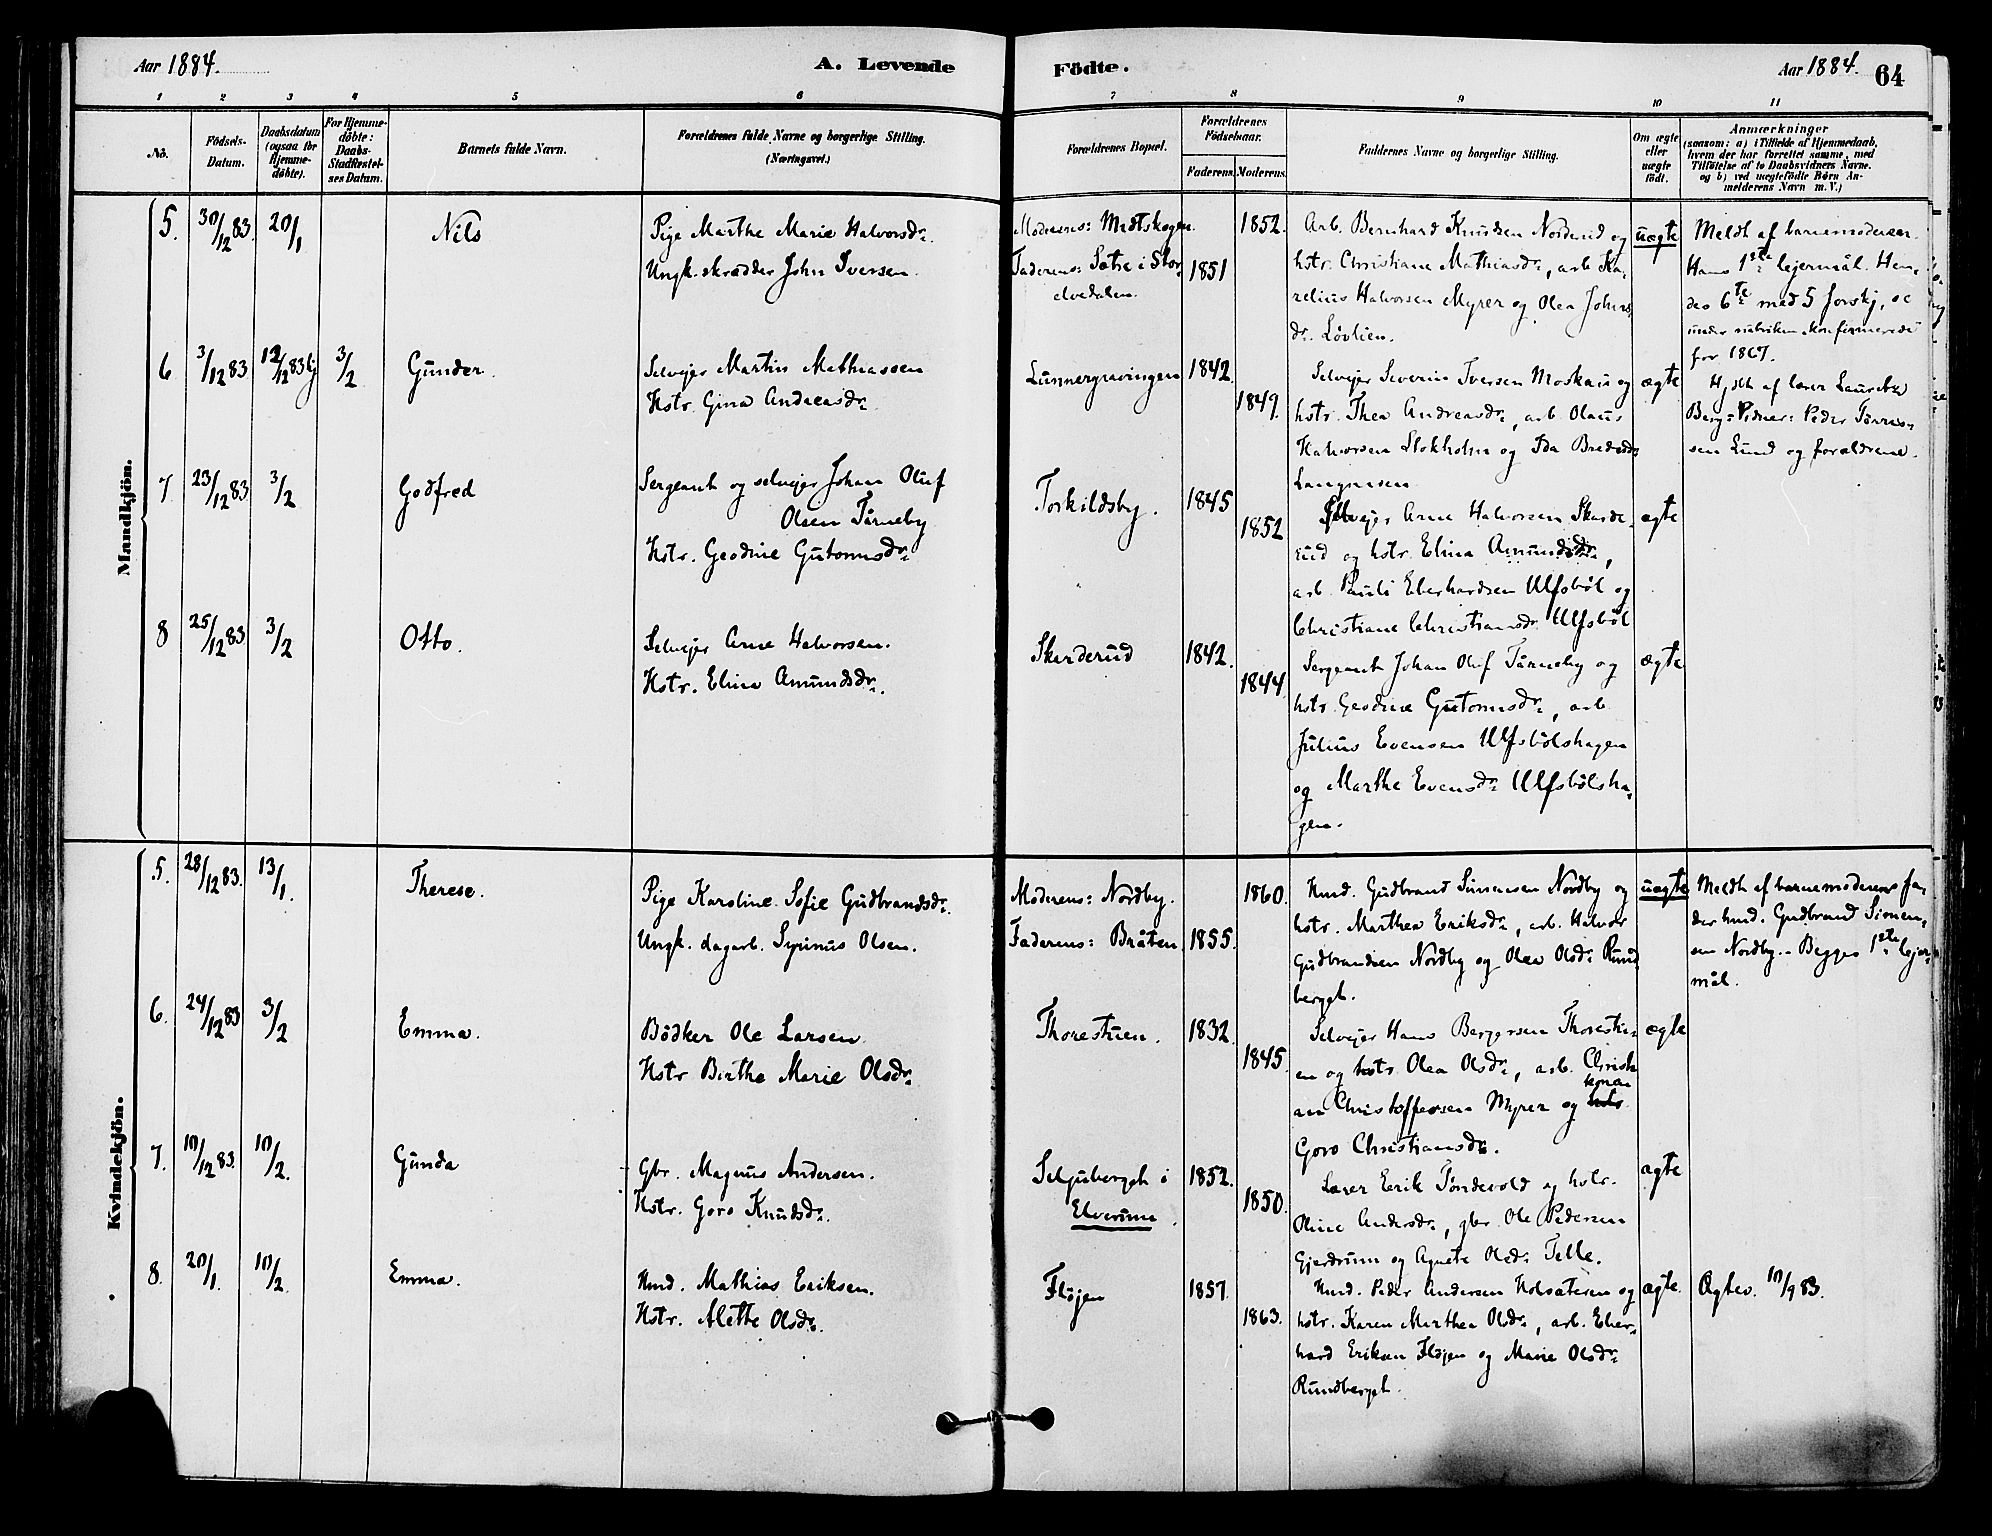 Aar 1884.
A. Levende Födte.
Aar 1884. 64
1 2 3 4 5 6 7 8 9 10 11
No.
Födsels-Datum.
Daabsdatum (ogsaa for Hjemme-døbte).
For Hjemme-døbte: Daabs-Stadfæstel-ses Datum.
Barnets fulde Navn.
Forældrenes fulde Navne og borgerlige Stilling. (Næringsvei.)
Forældrenes Bopæl.
Forældrenes Födselsaar.
Faderens. Moderens.
Faddernes Navne og borgerlige Stilling.
Om ægte eller uægte født.
Anmærkninger
(saasom: a) i Tilfælde af Hjemmedaab, hvem der har forrettet samme, med Tilføielse af to Daabsvidners Navne. og b) ved uægtefødte Børn An-melderens Navn m. V.)
Mandkjön.
5. 30/12 83. 20/1 Nils
Pige Marthe Marie Halvorsdr.
Ungk. skrædder John Iversen.
Moderens: Midtskogen.
Faderens: Sætre i Stor-
elvedalen.
1852.
1851
Arb. Bernhard Knudsen Norderud og
hstr. Christiane Mathiasdr., arb. Ka-
relius Halvorsen Myrer og Olea Johns
dr. Løvlien.
uægte
Meldt af barnemoderen.
Hans 1ste lejermål. Hen-
des 6te med 5 forskj., se
under rubriken konfirmerede
for 1867.
6 3/12 83 12/12 83 hj 3/2 Gunder.
Selvejer Martin Mathiassen
Hstr. Gina Andreasdr.
Lunnergravingen
1842.
1849.
Selvejer Severin Iversen Moskau og
hstr. Thea Andreasdr., arb. Olaus
Halvorsen Stokholm og Ida Bredesdr
Langmoen
ægte
Hjdbt af lærer Lauritz
Berg: Vidner: Peder Tørres-
sen Lund og forældrene.
7. 23/12 83 3/2 Godfred
Sergeant og selvejer Johan Oluf
Olsen Tørneby
Hstr. Geodine Gutormsdr.
Torkildsby.
1845
1852
Selvejer Arne Halvorsen Skarde-
rud og hstr. Elina Amundsdr.,
arb. Pauli Eberhardsen Ulfsbøl og
Christiane Christiansdr. Ulfsbøl
ægte
8 25/12 83. 3/2 Otto.
Selvejer Arne Halvorsen.
Hstr. Elina Amundsdr.
Skarderud
1842.
1844.
Sergeant Johan Oluf Tørneby og
hstr. Geodine Gutormsdr., arb.
Julius Evensen Ulfsbølshagen
og Marthe Evensdr. Ulfsbølsha-
gen.
ægte
Kvindekjön.
5. 28/12 83. 13/1 Therese.
Pige Karoline Sofie Gudbrandsdr.
Ungk. dagarb. Syrinus Olsen.
Moderens: Nordby.
Faderens: Bråten
1860.
1855.
Husmd. Gudbrand Simensen Nordby og
hstr. Marthea Eriksdr., arb. Halvor
Gudbrandsen Nordby og Olea Olsdr. Rund
berget.
uægte
Meldt af barnemoderens fa-
der hmd. Gudbrand Simen-
sen Nordby. - Begges 1ste lejer-
mål.
6. 24/12 83 3/2 Emma.
Bödker Ole Larsen.
Hstr Birthe Marie Olsdr.
Thorestuen.
1832.
1845.
Selvejer Hans Bergersen Thorestu-
en og hstr. Olea Olsdr., arb. Christi
an Christoffersen Myrer og kona
Goro Christiansdr.
ægte
7. 10/12 83. 10/2. Gunda
Gbr. Magnus Andersen.
Hstr. Goro Knudsdr.
Seljuberget i
Elverum.
1852.
1850.
Lærer Eerik Tøndevold og hstr.
Oline Andersdr., gbr. Ole Pedersen
Gjerdrum og Agnete Olsdr. Telle.
ægte
8. 20/1. 10/2. Emma.
Hmd. Mathias Eriksen.
Hstr. Alette Olsdr.
Fløjen
1857.
1863.
Hmd. Peder Andersen Holsæteren og
hstr. Karen Marthea Olsdr., arb. Eber-
hard Eriksen Fløjen og Marie Olsdr.
Rundberget.
ægte.
Ægtev. 10/9 83.